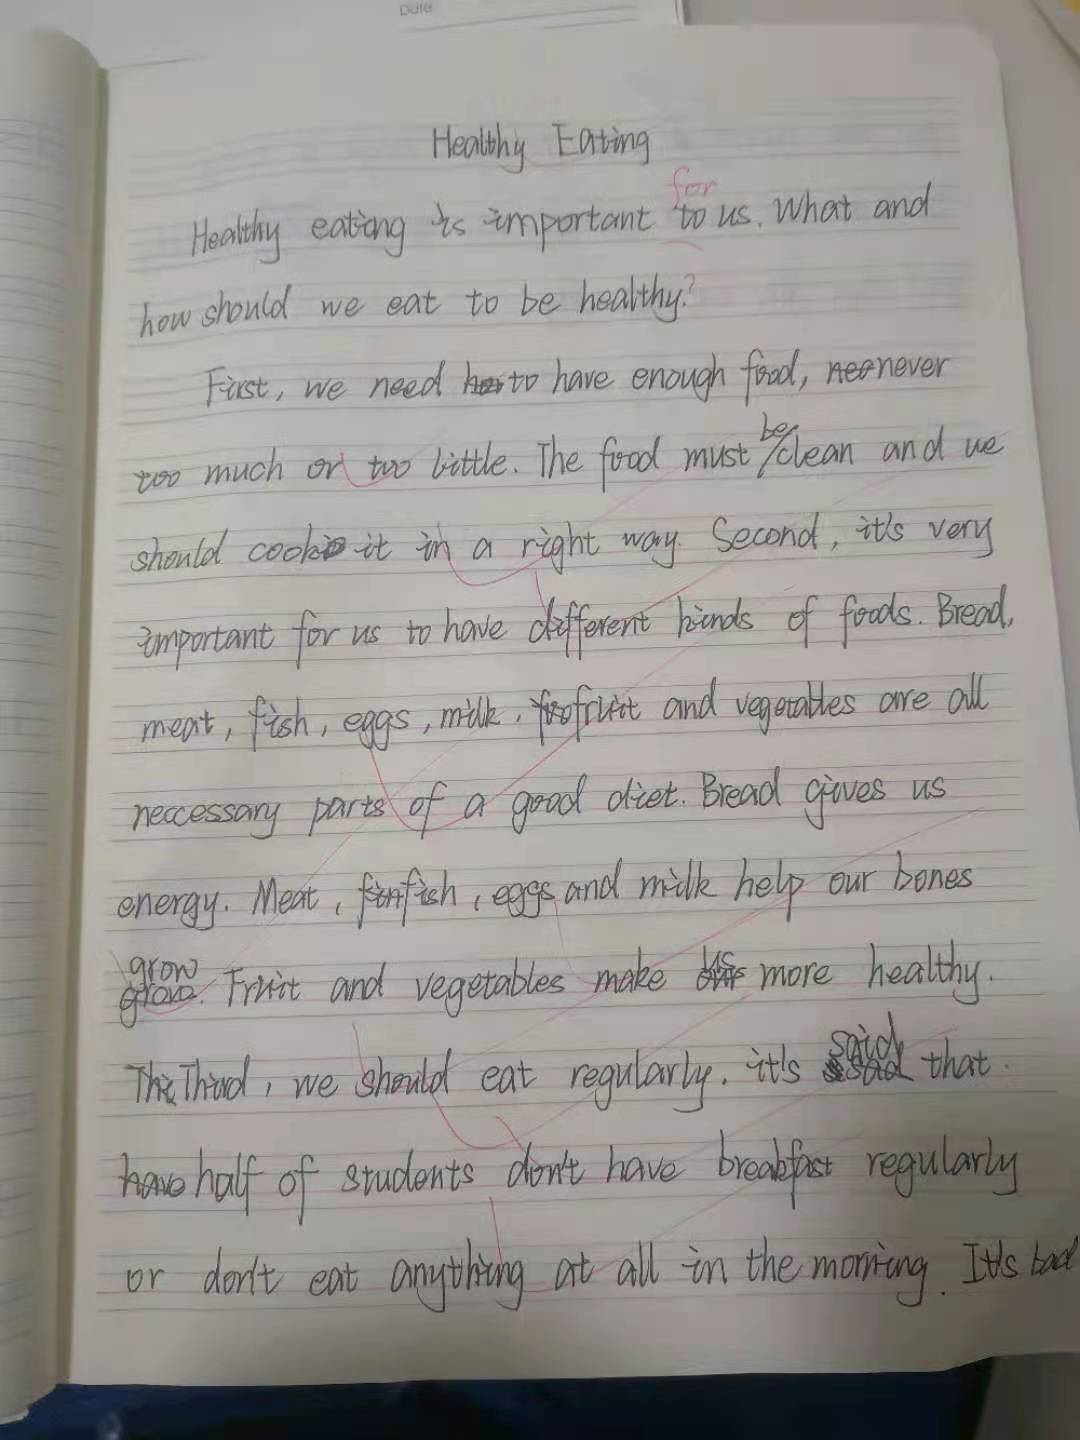 Date
Healthy Eating
for
Healthy eating is important to us. What and
how should we eat to be healthy?
First, we need to have enough food, never
too much or too little. The food must be clean and we
should cook it in a right way. Second, it's very
important for us to have different kinds of foods. Bread,
meat, fish, eggs, milk, fruit and vegetables are all
neccessary parts of a good diet. Bread gives us
energy. Meat, fish, eggs and milk help our bones
grow. Fruit and vegetables make us more healthy.
Third, we should eat regularly. it's said that
half of students don't have breakfast regularly
or don't eat anything at all in the morning. It's bad